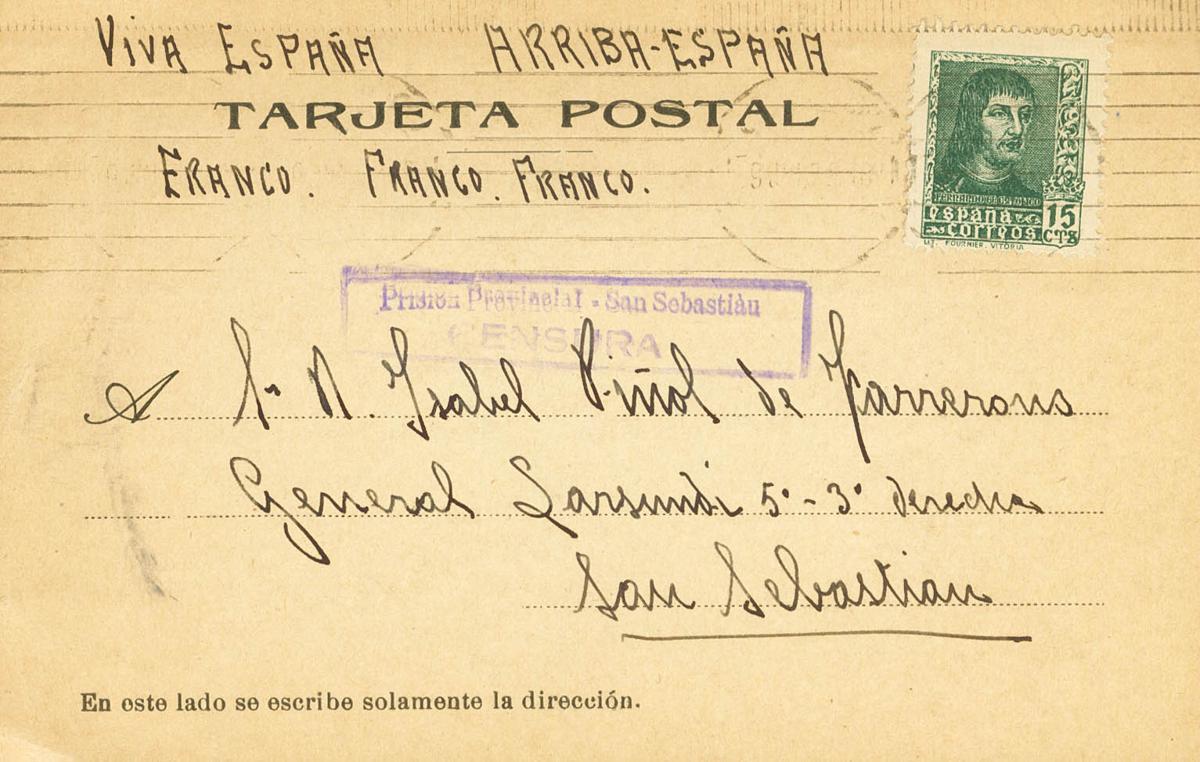 VIVA ESPAÑA ARRIBA-ESPAÑA
TARJETA POSTAL
FRANCO. FRANCO. FRANCO.
ESPAÑA
CORREOS
15
CTS
LIT. FOURNIER. VITORIA
Prisión Provincial - San Sebastián
CENSURA
A Sra D. Isabel Piñol de Farrerons
General Larsundi 5º - 3º derecha
San Sebastian
En este lado se escribe solamente la dirección.